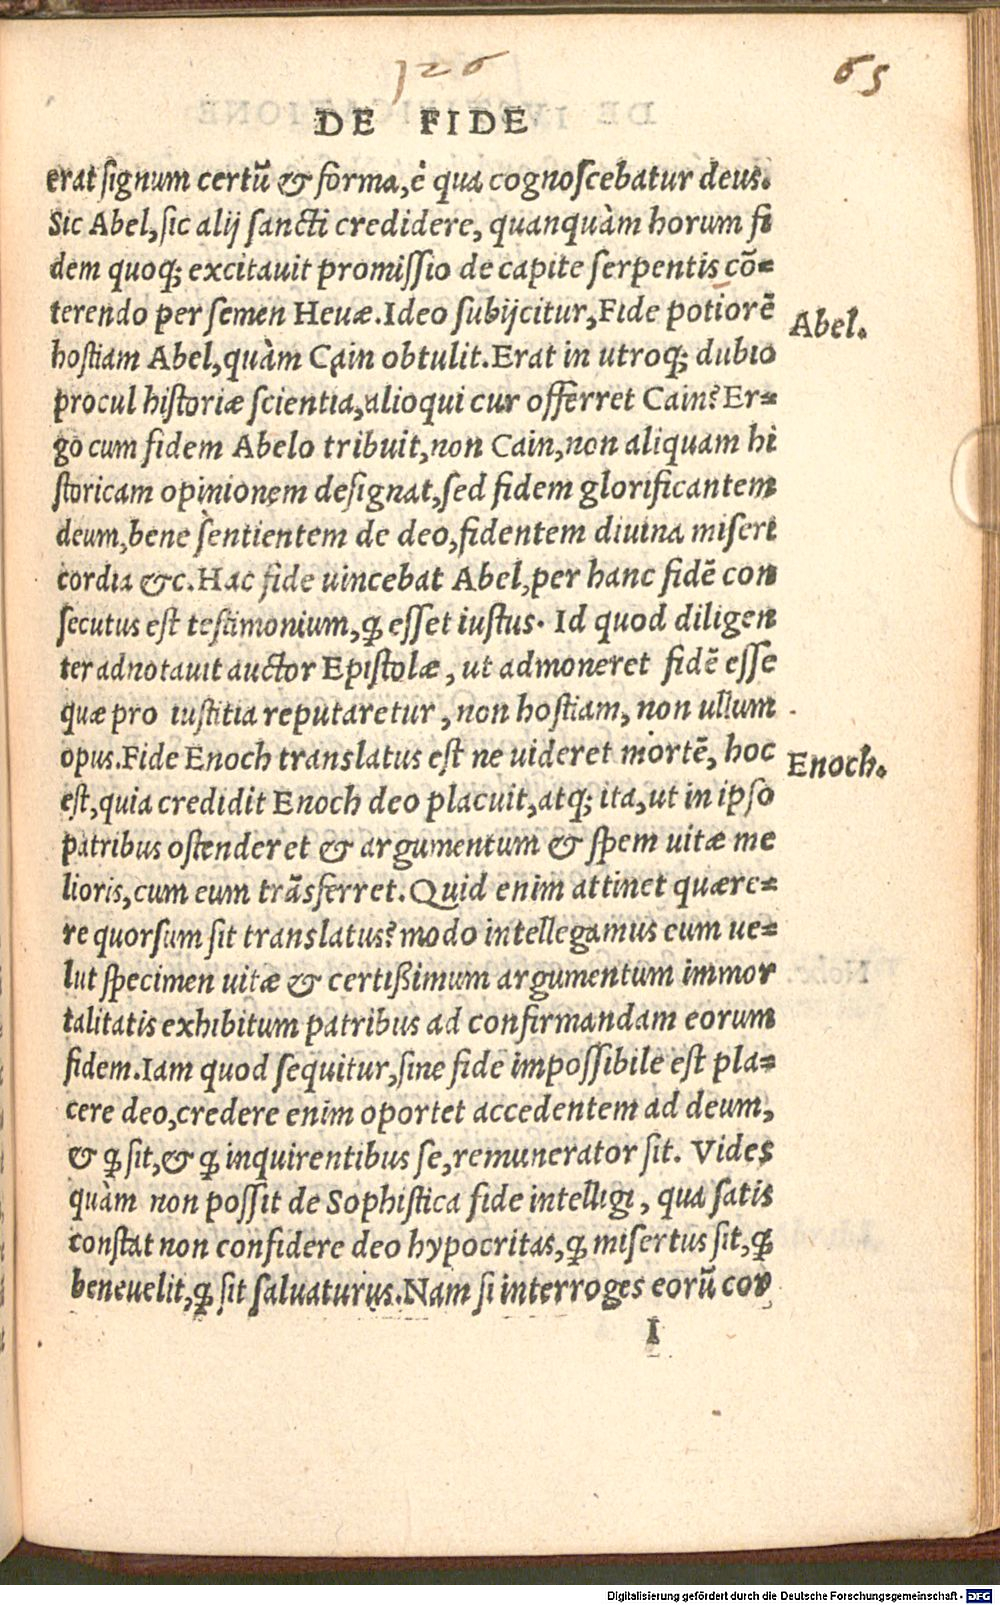 126
65
DE FIDE
erat signum certũ & forma, ẽ qua cognoscebatur deus.
Sic Abel, sic alij sancti credidere, quanquàm horum fi
dem quoq; excitavit promissio de capite serpentis cõ=
terendo per semen Hevæ. Ideo subijcitur, Fide potiorẽ
Abel.
hostiam Abel, quàm Cain obtulit. Erat in utroq; dubio
procul historiæ scientia, alioqui cur offerret Cain? Er=
go cum fidem Abelo tribuit, non Cain, non aliquam hi
storicam opinionem designat, sed fidem glorificantem
deum, bene sentientem de deo, fidentem divina miseri
cordia &c. Hac fide uincebat Abel, per hanc fidẽ con
secutus est testimonium, ꝙ esset iustus. Id quod diligen
ter adnotavit auctor Epistolæ, ut admoneret fidẽ esse
quæ pro iustitia reputaretur, non hostiam, non ullum
opus. Fide Enoch translatus est ne uideret mortẽ, hoc
Enoch.
est, quia credidit Enoch deo placuit, atq; ita, ut in ipso
patribus ostenderet & argumentum & spem uitæ me
lioris, cum eum trãsferret. Quid enim attinet quære=
re quorsum sit translatus? modo intellegamus eum ue=
lut specimen uitæ & certißimum argumentum immor
talitatis exhibitum patribus ad confirmandam eorum
fidem. Iam quod sequitur, sine fide impossibile est pla=
cere deo, credere enim oportet accedentem ad deum,
& ꝙ sit, & ꝙ inquirentibus se, remunerator sit. Vides
quàm non possit de Sophistica fide intelligi, qua satis
constat non confidere deo hypocritas, ꝙ misertus sit, ꝙ
benevelit, ꝙ sit salvaturus. Nam si interroges eorũ cor
I
Digitalisierung gefördert durch die Deutsche Forschungsgemeinschaft - DFG